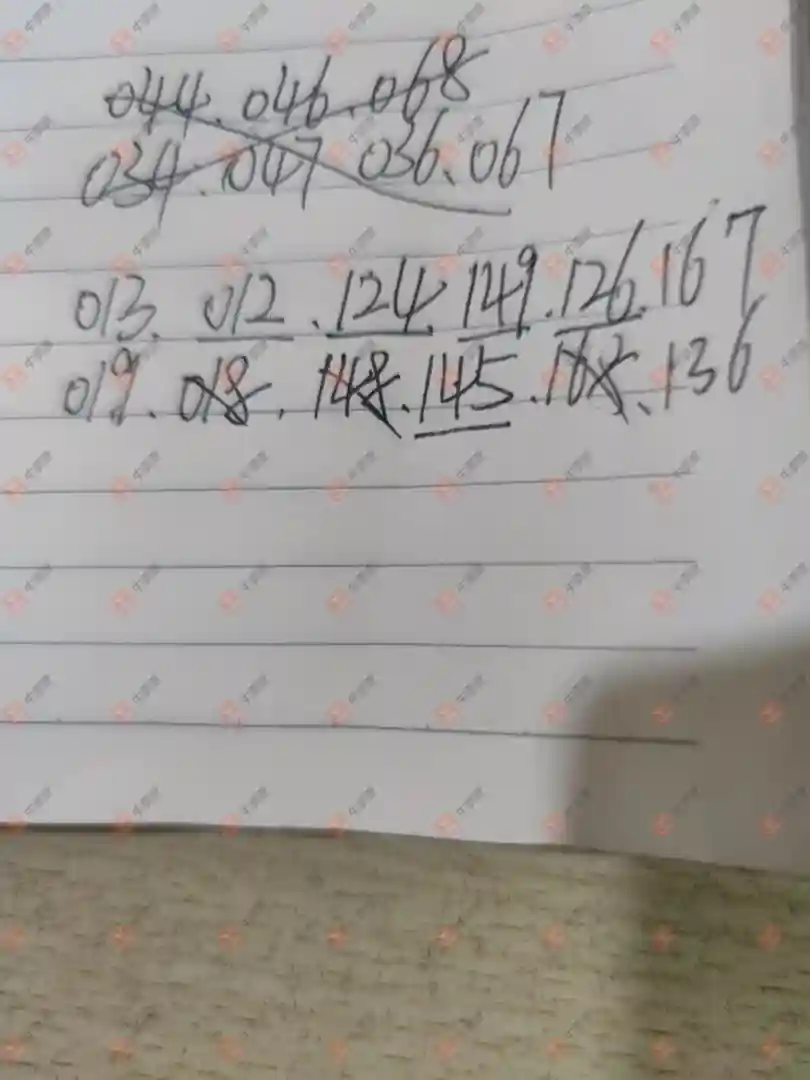 044.046.068
034.047 036.067
013.012.124.149.126.167
019.018.148.145.163.136